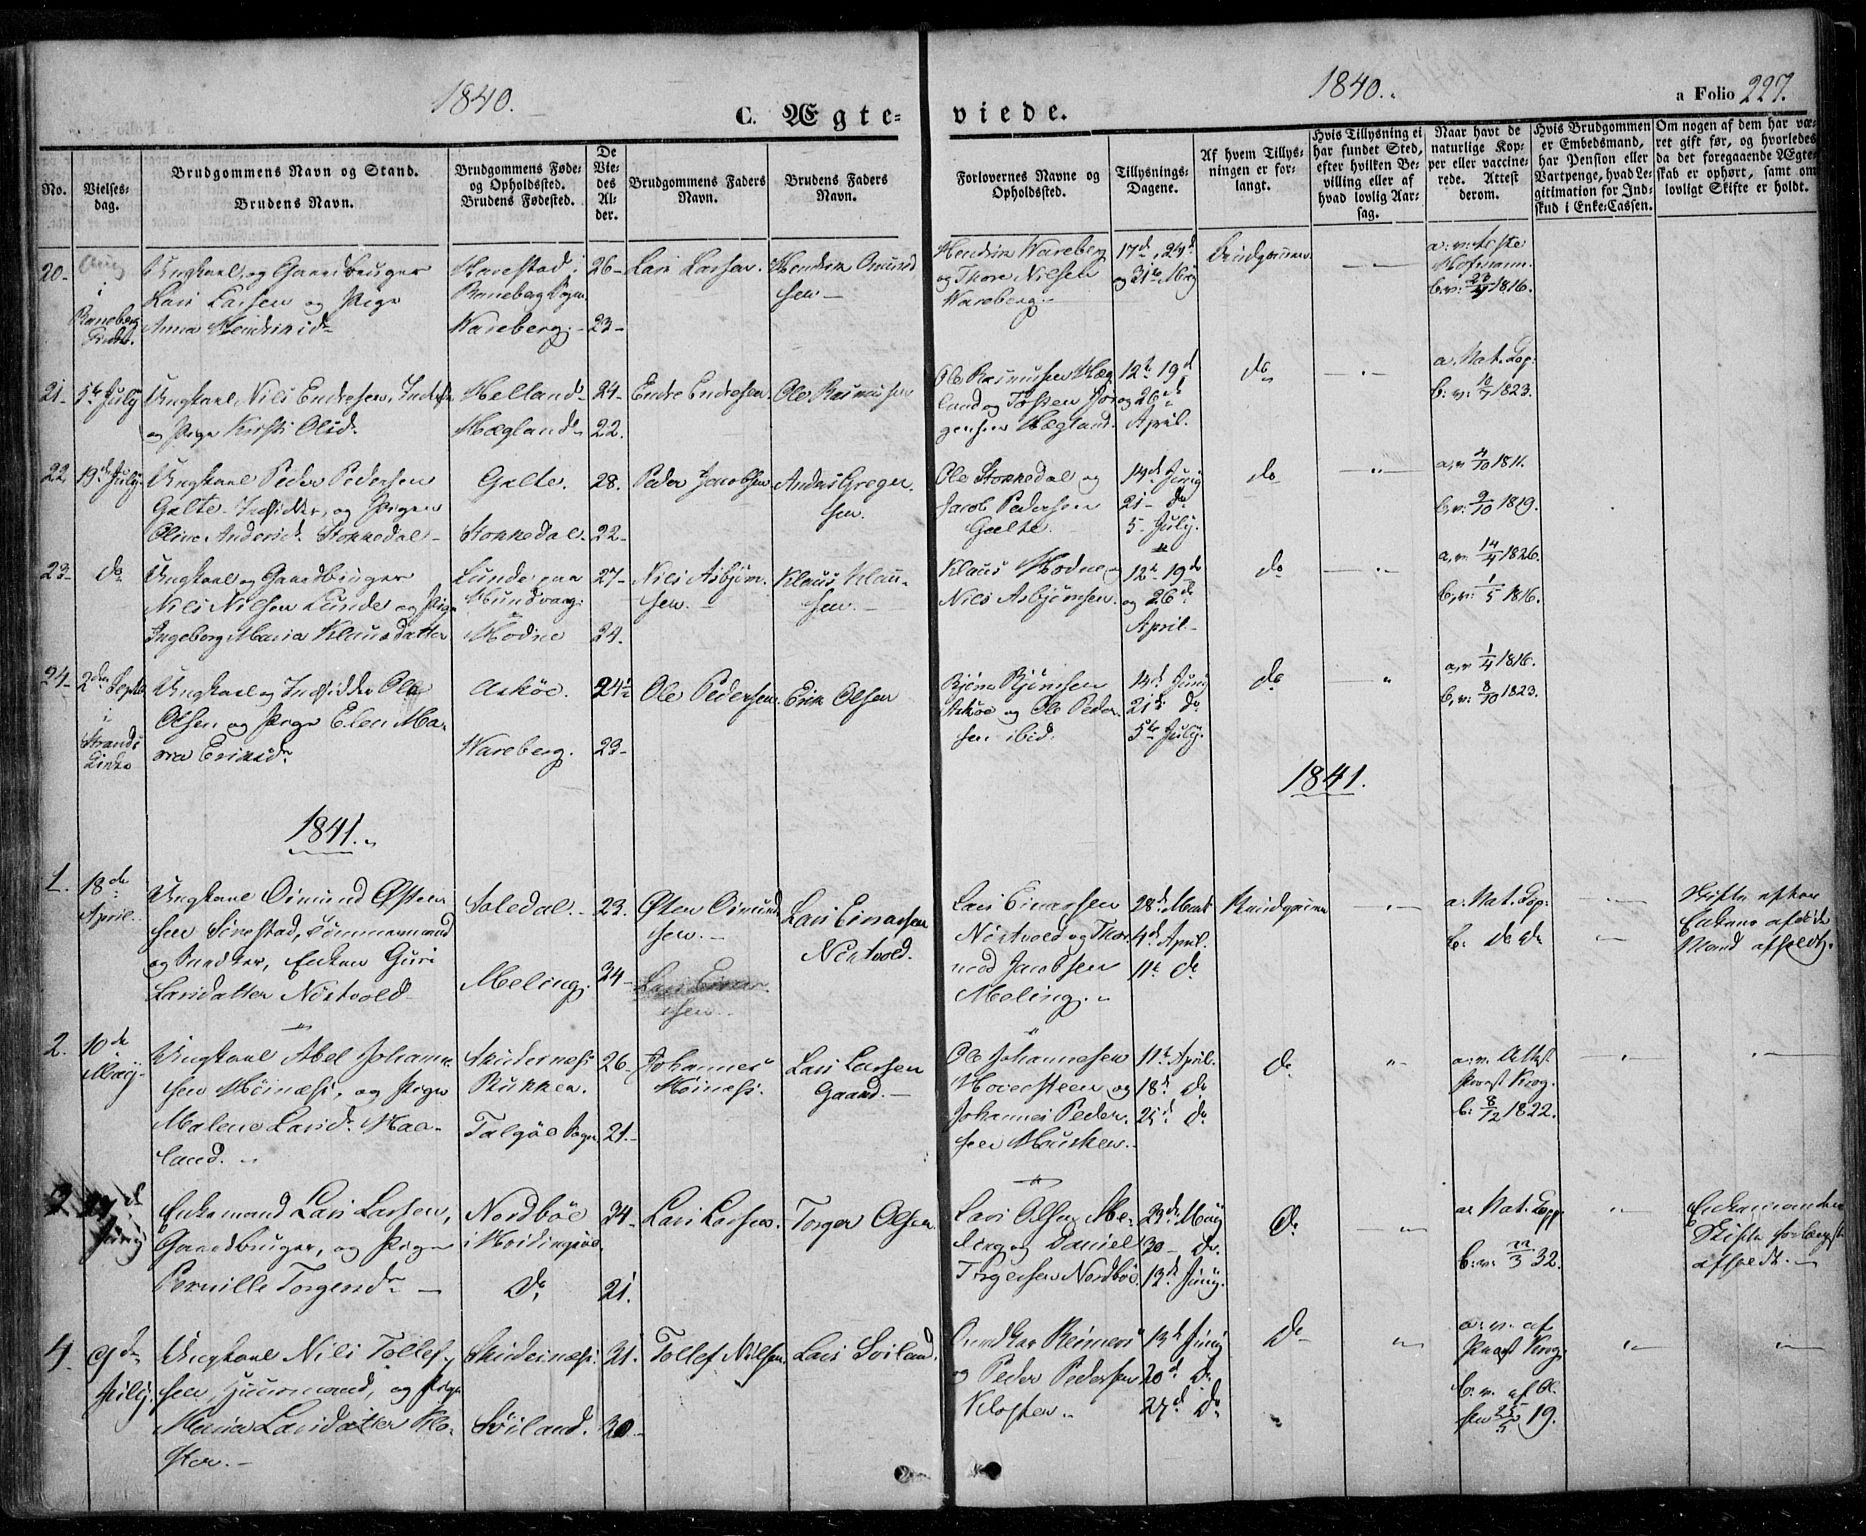 1840.
1840.
a Folio 227.
C. Ægte=
viede.
No.
Vielses-
dag.
Brudgommens Navn og Stand.
Brudens Navn.
Brudgommens Føde-
og Opholdssted.
Brudens Fødested.
De
Vie-
des
Al-
der.
Brudgommens Faders
Navn.
Brudens Faders
Navn.
Forlovernes Navne og
Opholdssted.
Tillysnings-
Dagene.
Af hvem Tillys-
ningen er for-
langt.
Hvis Tillysning ei
har fundet Sted,
efter hvilken Be-
villing eller af
hvad lovlig Aar-
sag.
Naar havt de
naturlige Kop-
per eller vaccine-
rede. Attest
derom.
Hvis Brudgommen
er Embedsmand,
har Pension eller
Vartpenge, hvad Le-
gitimation for Ind-
skud i Enke-Cassen.
Om nogen af dem har væ-
ret gift før, og hvorledes
da det foregaaende Ægte-
skab er ophørt, samt om
lovligt Skifte er holdt.
20-
i
Ungkarl og Gaardbruger
Lars Larsen og Pige
Anna Hendriksdr
Harestad i
Wareberg.
26-
23-
Lars Larsen.
Hendrik Omund
sen-
Hendrik Wareberg
og Thore Nilsen
Wareberg.
17d, 24d
og 31te Maij
Brudgommen
Hofmann.
b: v: 23/9 1816.
21-
5te July
Ungkarl Nils Endresen
og Pige Kirsti Olsd.
Helland
Hægland
24-
22.
Endre Endresen.
Ole Rasmusen
Ole Rasmusen Hæg
land og Tosten Jør
gensen Hægland.
12te 19d
og 26d
April.
do
a. Nat. Cop:
b: v: 10/7 1823.
22
19de July.
Ungkarl Peder Pedersen
Galte. Indsidder, og Pigen
Oline Andersd. Stokkedal-
Galte.
Stokkedal.
28.
22-
Peder Jacobsen
Anders Greger
sen.
Ole Stokkedal og
Jacob Pedersen
Galte.
14d Juny
21- do
5- July.
do
a, v 4/10 1811.
b, v: 9/10 1819.
23-
do
Ungkarl og Gaardbruger
Nils Nilsen Lunde og Pige
Ingeborg Maria Klausdatter
Lunde paa
Hundvaag
Hodne
27-
24.
Nils Asbjørn
sen.
Klaus Klau-
sen.
Klaus Hodne og
Nils Asbjørnsen.
12te 19de
og 26d
April-
do
a, v: 14/4 1826.
b, v: 1/5 1816.
24-
2den Septb
i
Strands
Kirke
Ungkarl og Indsidder Ole
Olsen og Pige Elen Ma-
ria Eriksdr
Askøe.
Wareberg.
24½
23-
Ole Pedersen.
Erik Olsen
Bjørn Bjørnsen
Askøe og Ole Peder-
sen ibid.
14d Juny
21d do
5te July.
do
a, v 1/4 1816.
b, v: 8/10 1823.
1841.
1841.
1.
18de
April.
Ungkarl Omund Østen
sen Sørestad, Tømmermand
og Snedker, Enken Guri
Larsdatter Nortvold
Soledal.
Meling.
23.
34-
Østen Omund
sen.
Lars Einar
sen.
Lars Einarsen
Nortvold.
Lars Einarsen
Nortvold og Thor
mod Jacobsen
Meling.
28d Marts
4d April.
11te do
Brudgommen
a. Nat. Cop:
b: do do
Skifte efter
Enkens afdøde
Mand afholdt.
2.
10de
Maij.
Ungkarl Abel Johanne
sen Høinæs, og Pige
Malene Larsdr. Haa-
land.
Skudesnæs
Bukken.
Talgøe Sogn
26.
21-
Johannes
Høinæs.
Lars Larsen
Gaard.
Ole Johannesen
og
Johannes Peder-
sen Hausken.
11te April.
18d do
25d do
do
a: v. Attest
Provst Krog.
b: 8/12 1822.
3.
Juny
Enkemand Lars Larsen,
Gaardbruger, og Pige
Pernille Torgersdr
Nordbøe
do
34-
21.
Lars Larsen.
Torger Olsen
Lars Olsen Me-
ling og Daniel
Torgersen Nordbøe.
23d Maij
30- do
13d Juny.
do
a. Nat. Cop.
b: v. 22/3 32.
Enkemanden
Skifte forlængst
afholdt.
4.
9de
July.
Ungkarl Nils Tollef-
sen, Huusmand, og Pige
Maria Larsdatter Klo-
ster.
Skudesnæs.
Soiland.
31.
30-
Tollef Nilsen
Lars Soiland.
Reimers
og Peder Pedersen
Kloster.
13d Juny
20d do
27d do
do
a. v. af
Provst Krog.
b. v. af
25/5 19.